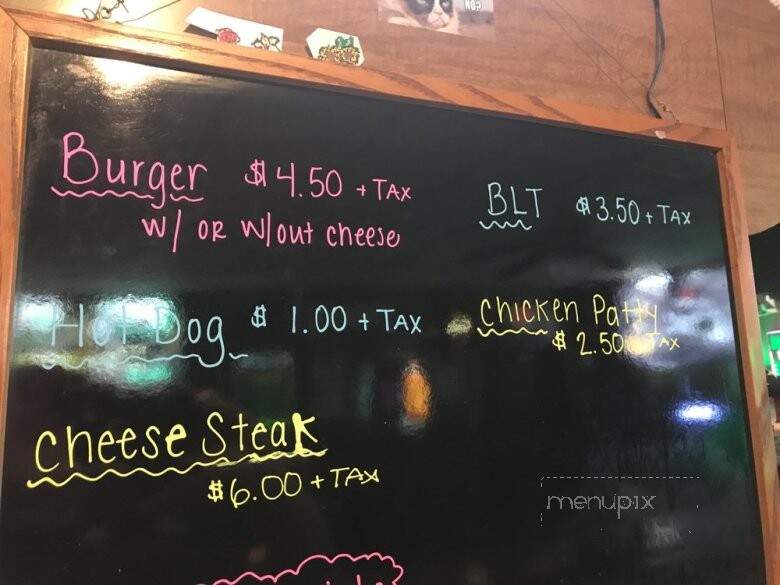 NO?
Burger $4.50 + TAX
w/ OR w/out cheese
BLT $3.50 + TAX
Hot Dog $ 1.00 + TAX
Chicken Patty
$ 2.50 + TAX
cheese Steak
$6.00 + TAX
menupix